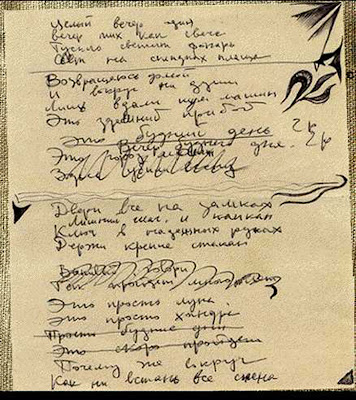 Целый вечер один
вечер тих как свеча
Тускло светит фонарь
Свет на
Возвращаюсь домой
И вокруг ни души
Лишь вдали шум машин
Это здешний прибой
Это будний день 2р
Это дня. 2р
Двери все на замках
Лишний шаг, и капкан
Ключ в надежных руках
Держи крепче стакан
Это просто луна
Это просто хандра
Просто будние дни
Это скоро пройдет
Почему же вокруг
Как ни встань все стена